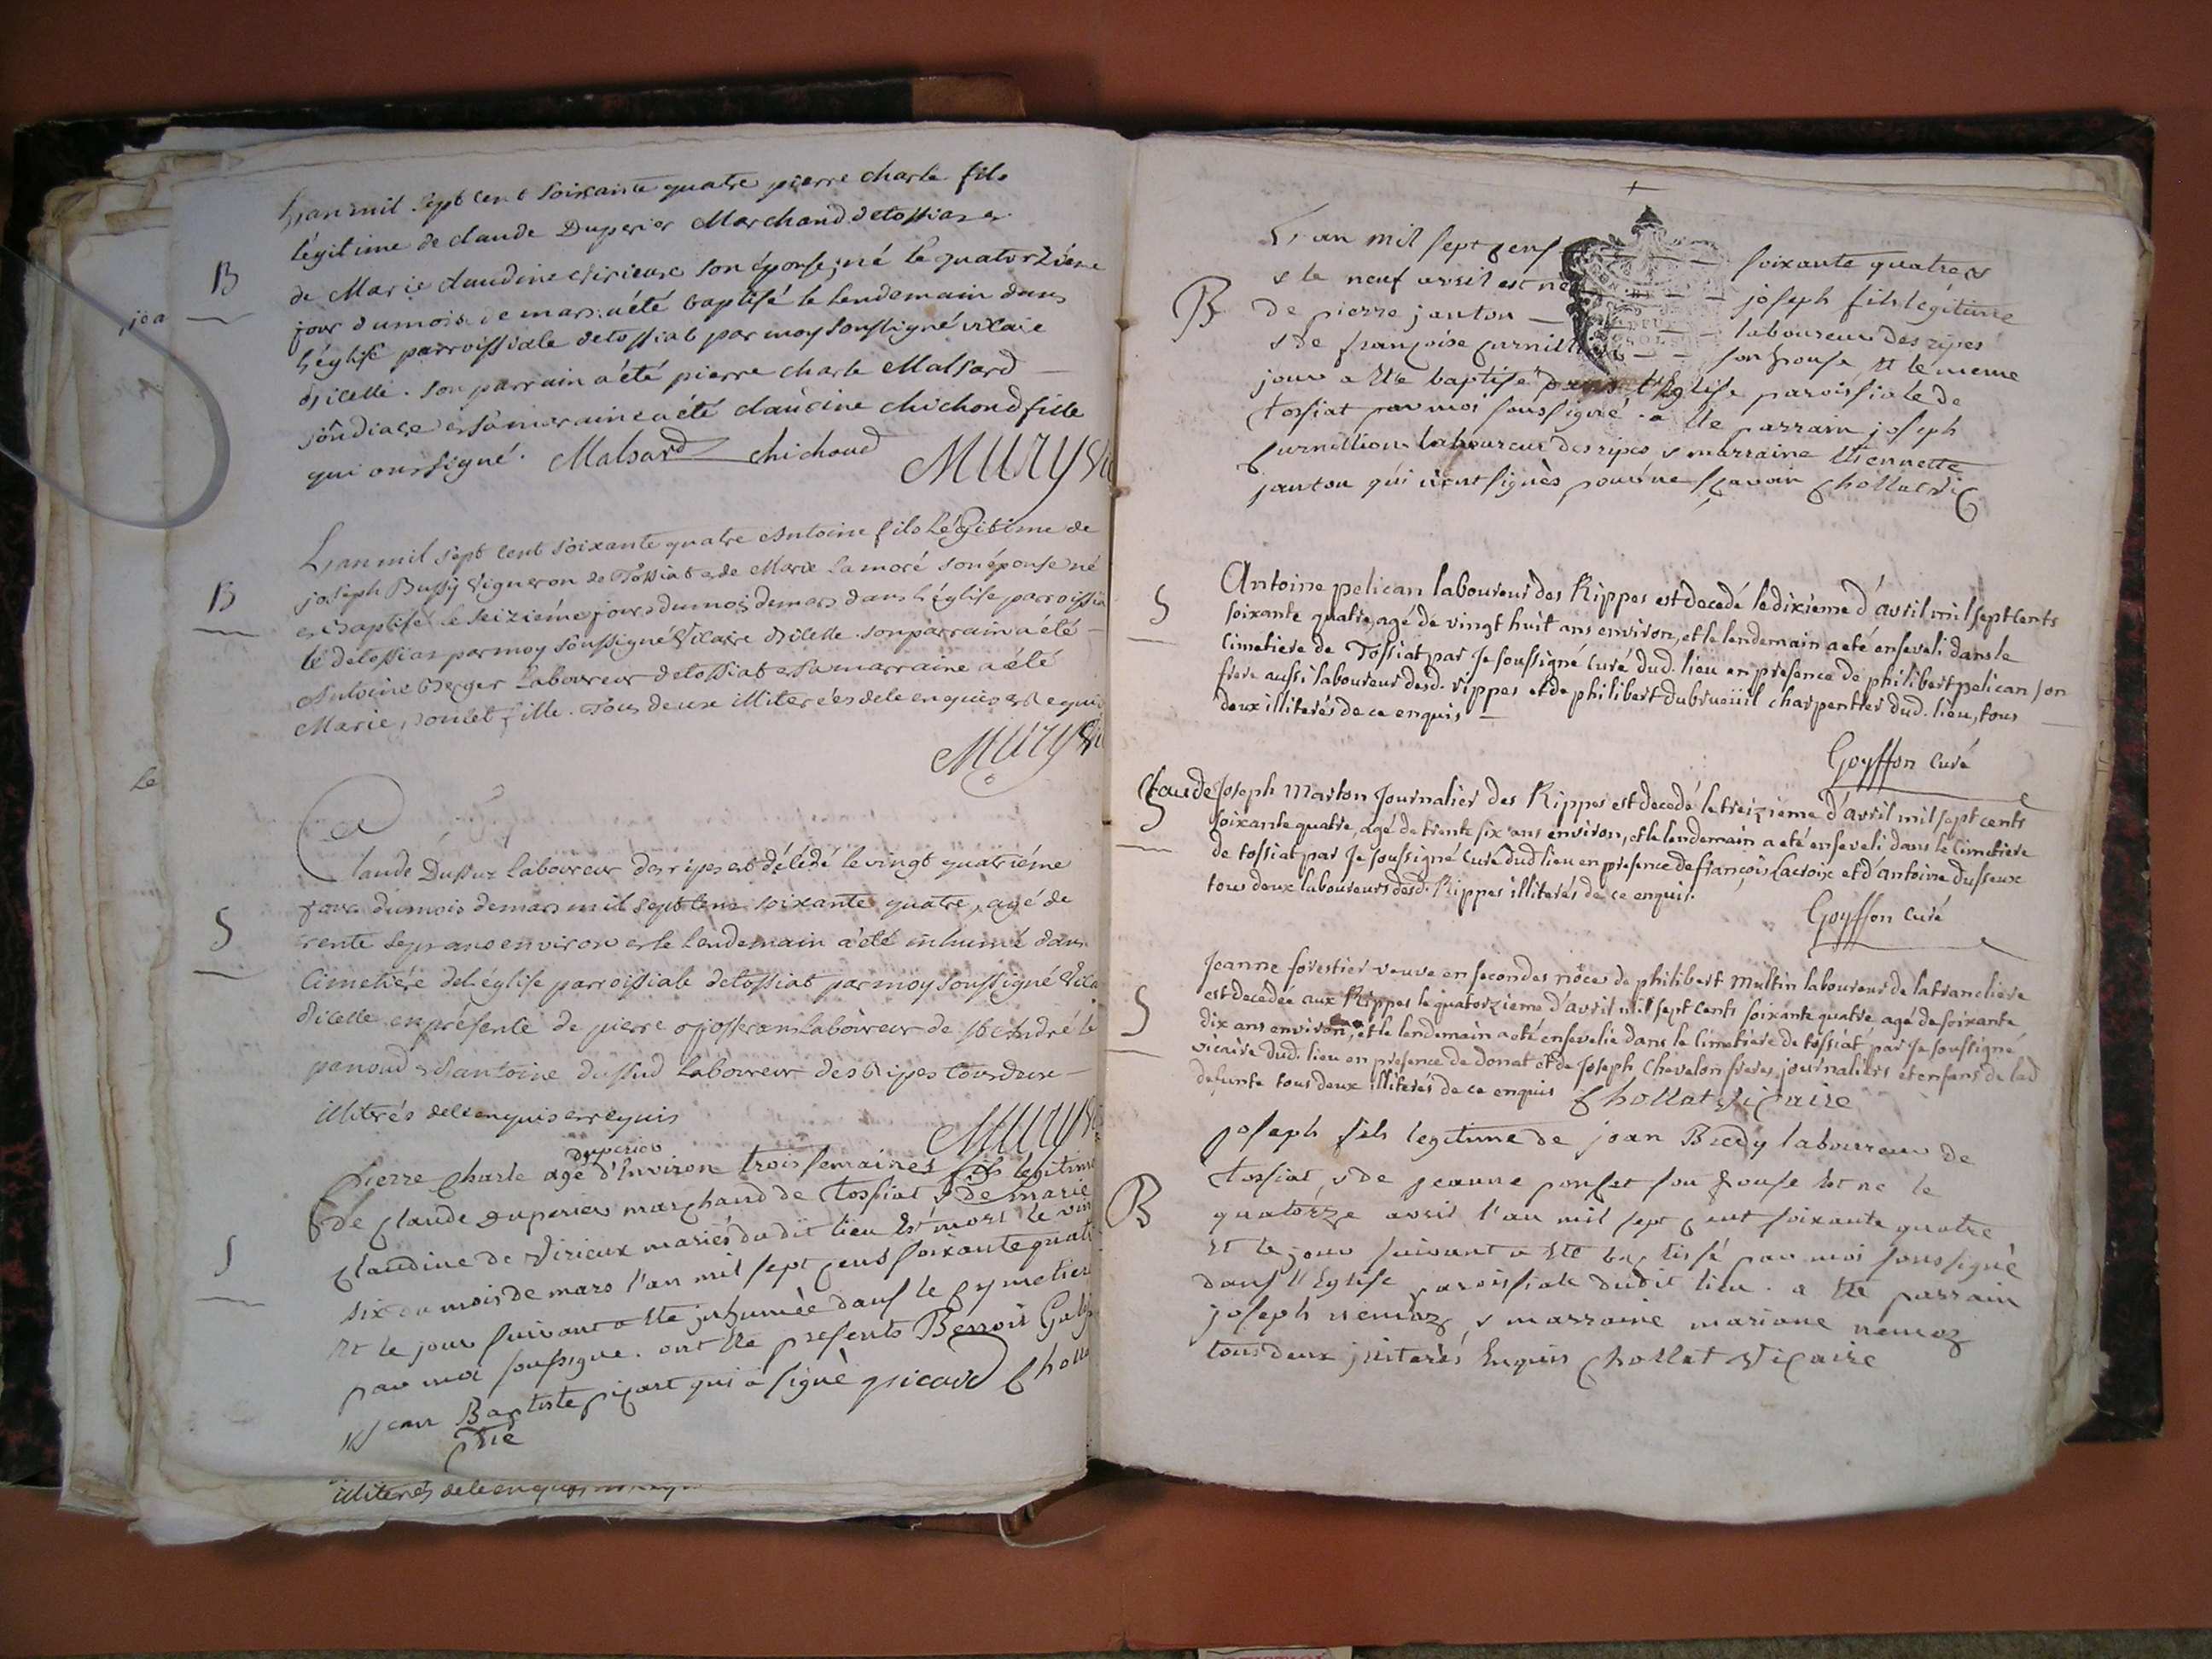 L'an mil sept cent soixante quatre pierre charle fils
légitime de claude Duperier Marchand de tossiat et
de Marie claudine virieux son épouse, né le quatorzième
B
jour du mois de mars a été baptisé le lendemain dans
l'église parroissiale de tossiat par moy soussigné vicaire
d'icelle. son parrain a été pierre charle Malsard
et sa marraine a été claudine chichoud fille
qui ont signé. Malsard chichoud MURY
L'an mil sept cent soixante quatre Antoine fils légitime de
joseph Bussy vigneron de Tossiat et de Marie Lamoré son épouse né
B
et baptisé le seizième jour du mois de mars dans l'église parroissia
le de tossiat par moy soussigné vicaire d'icelle. son parrain a été
Antoine Berger Laboureur de tossiat et sa marraine a été
Marie poncet fille. Tous deux illiterés de ce enquis et requis
MURY
Claude Dussuz laboureur des ripes est décédé le vingt quatriéme
jour du mois de mars mil sept cent soixante quatre, agé de
S
trente sept ans environ et le lendemain a été inhumé dans
Cimetiére de l'église parroissiale de tossiat par moy soussigné
d'icelle en présence de pierre Laboureur de St André le
panoud et d'antoine dussud Laboureur des Ripes tous deux
illiterés de ce enquis et requis
MURY
duperier
pierre charle agé d'environ trois semaines fils legitime
de claude duperier marchand de tossiat & de marie
claudine de virieux mariés du dit lieu est mort le vin
S
six du mois de mars l'an mil sept cens soixante quatr
et le jour suivant a été inhumée dans le cymetier
par moi soussigné. ont été presents Benoit
& jean Baptiste picart qui a signé picard Cholla
illiterés de ce enquis
L'an mil sept cens soixante quatre
& le neuf avril est né joseph fils légitime
B
de pierre janton laboureur des ripes
& de françoise curnill son epouse et le meme
jour a été baptisé dans l'Eglise paroissiale de
tossiat par moi soussigné. a été parrain joseph
Curnillion laboureur des ripes & marraine etiennette
janton qui n'ont signés pour ne sçavoir Chollat vic
Antoine pelican laboureur des Rippes est decedé le dixieme d'avril mil sept cents
S
soixante quatre, agé de vingt huit ans environ, et le lendemain a eté enseveli dans le
Cimetiere de Tossiat par Je soussigné Curé dud. lieu en presence de philibert pelican son
frere aussi laboureur desd. rippes et de philibert dubrueüil charpentier dud. lieu, tous
deux illiterés de ce enquis
Goyffon Curé
Claude Joseph Marton Journalier des Rippes est decedé le treizieme d'avril mil sept cents
S
soixante quatre, agé de trente six ans environ, et le lendemain a eté enseveli dans le Cimetiere
de tossiat par Je soussigné Curé dud lieu en presence de françois Lacroix et d'antoine dusseux
tous deux laboureurs desd. Rippes illiterés de ce enquis.
Goyffon Curé
Jeanne forestier veuve en secondes nôces de philibert Multin laboureur de latrancliere
est decedée aux Rippes le quatorzieme d'avril mil sept cents soixante quatre agé de soixante
S
dix ans environ, et le lendemain a eté ensevelie dans le Cimetiere de tossiat par Je soussigné
vicaire dud. lieu en presence de donat et de Joseph Chevalon freres, journaliers et enfans de lad
defunte tous deux illiterés de ce enquis Chollat vicaire
joseph fils legitime de jean Bredy laboureur de
tossiat, & de jeanne poncet son epouse est né le
B
quatorze avril l'an mil sept cent soixante quatre
et le jour suivant a été baptisé par moi soussigné
dans l'Eglise paroissiale dudit lieu. a été parrain
joseph nemoz, & marraine mariane nemoz
tous deux illiterés enquis Chollat vicaire